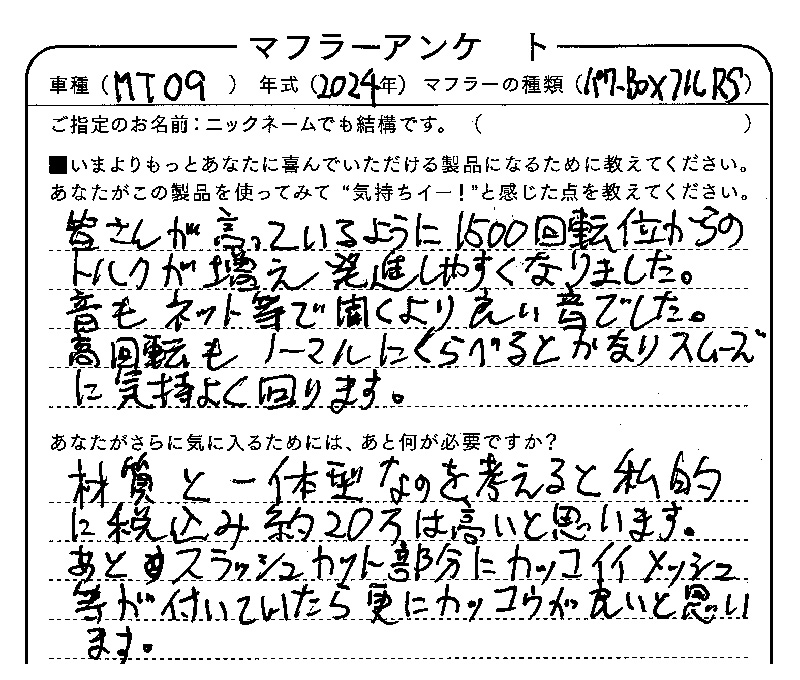 マフラーアンケ ト
車種（MT09）年式（2024年）マフラーの種類（パワーBOXフルRS）
ご指定のお名前：ニックネームでも結構です。（ ）
■いまよりもっとあなたに喜んでいただける製品になるために教えてください。
あなたがこの製品を使ってみて“気持ちイー！”と感じた点を教えてください。
皆さんが言っているように1500回転位からの
トルクが増え発進しやすくなりました。
音もネット等で聞くより良い音でした。
高回転もノーマルにくらべるとかなりスムーズ
に気持よく回ります。
あなたがさらに気に入るためには、あと何が必要ですか？
材質と一体型なのを考えると私的
に税込み約20万は高いと思います。
あとスラッシュカット部分にカッコイイメッシュ
等が付いていたら更にカッコウが良いと思い
ます。